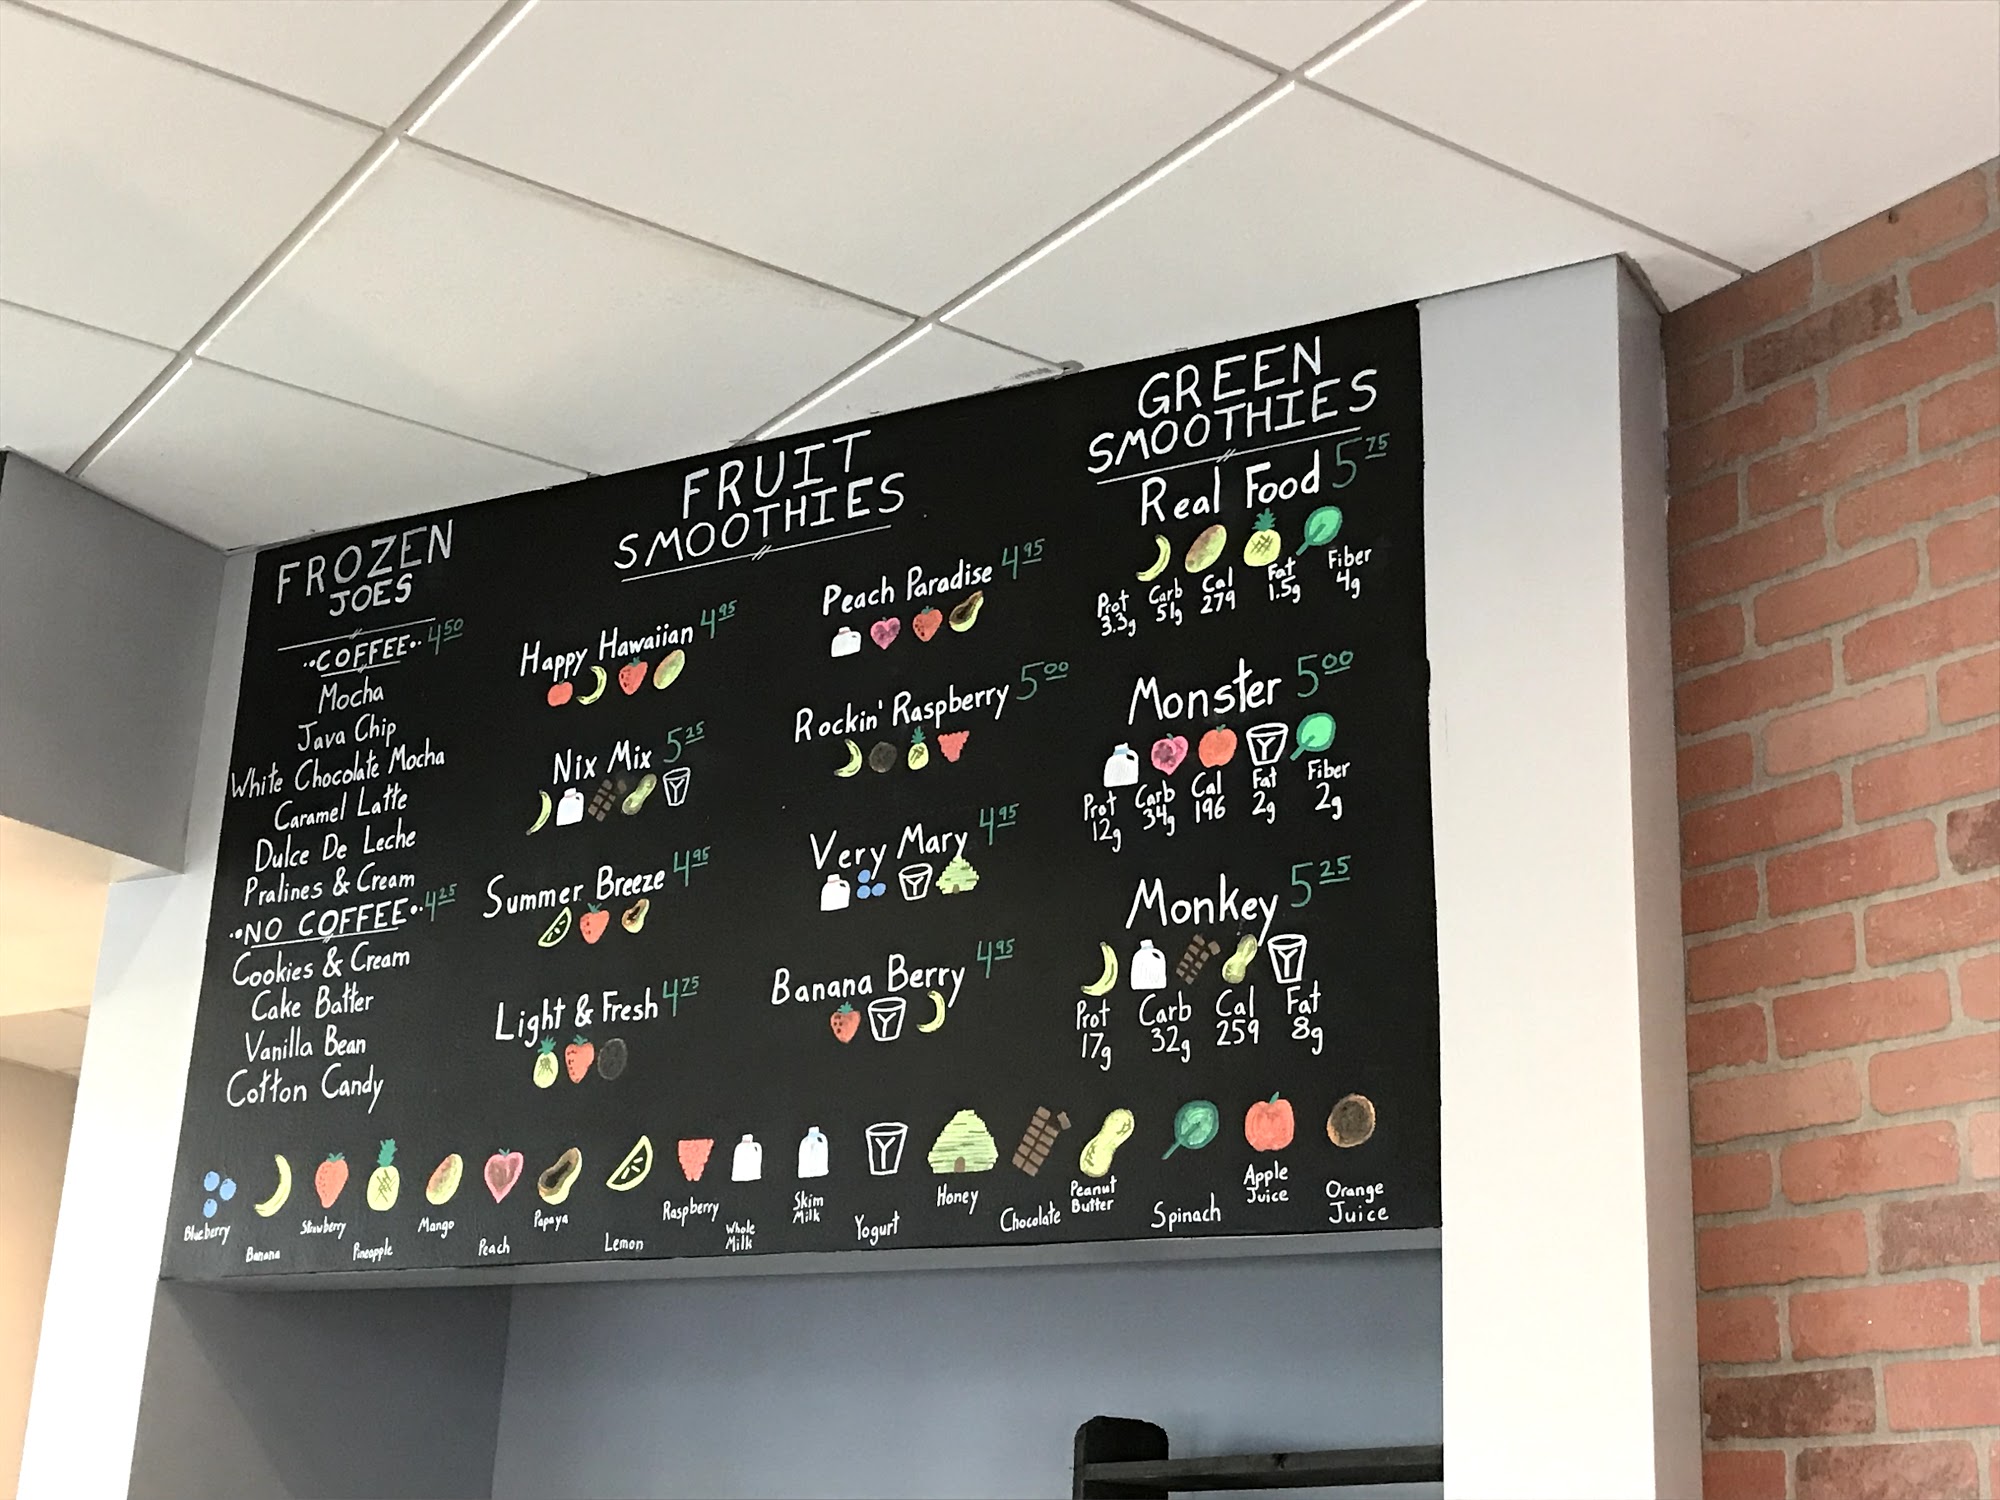 FROZEN
JOES
COFFEE 4.50
Mocha
Java Chip
White Chocolate Mocha
Caramel Latte
Dulce De Leche
Pralines & Cream
NO COFFEE 4.25
Cookies & Cream
Cake Batter
Vanilla Bean
Cotton Candy
FRUIT
SMOOTHIES
Happy Hawaiian 4.95
Nix Mix 5.25
Summer Breeze 4.95
Light & Fresh 4.75
Peach Paradise 4.95
Rockin' Raspberry 5.00
Very Mary 4.95
Banana Berry 4.95
GREEN
SMOOTHIES
Real Food 5.75
Prot Carb Cal Fat Fiber
3.3g 51g 279 1.5g 4g
Monster 5.00
Prot Carb Cal Fat Fiber
12g 34g 196 2g 2g
Monkey 5.25
Prot Carb Cal Fat
17g 32g 259 8g
Blueberry
Banana
Strawberry
Pineapple
Mango
Peach
Papaya
Lemon
Raspberry
Whole
Milk
Skim
Milk
Yogurt
Honey
Chocolate
Peanut
Butter
Spinach
Apple
Juice
Orange
Juice